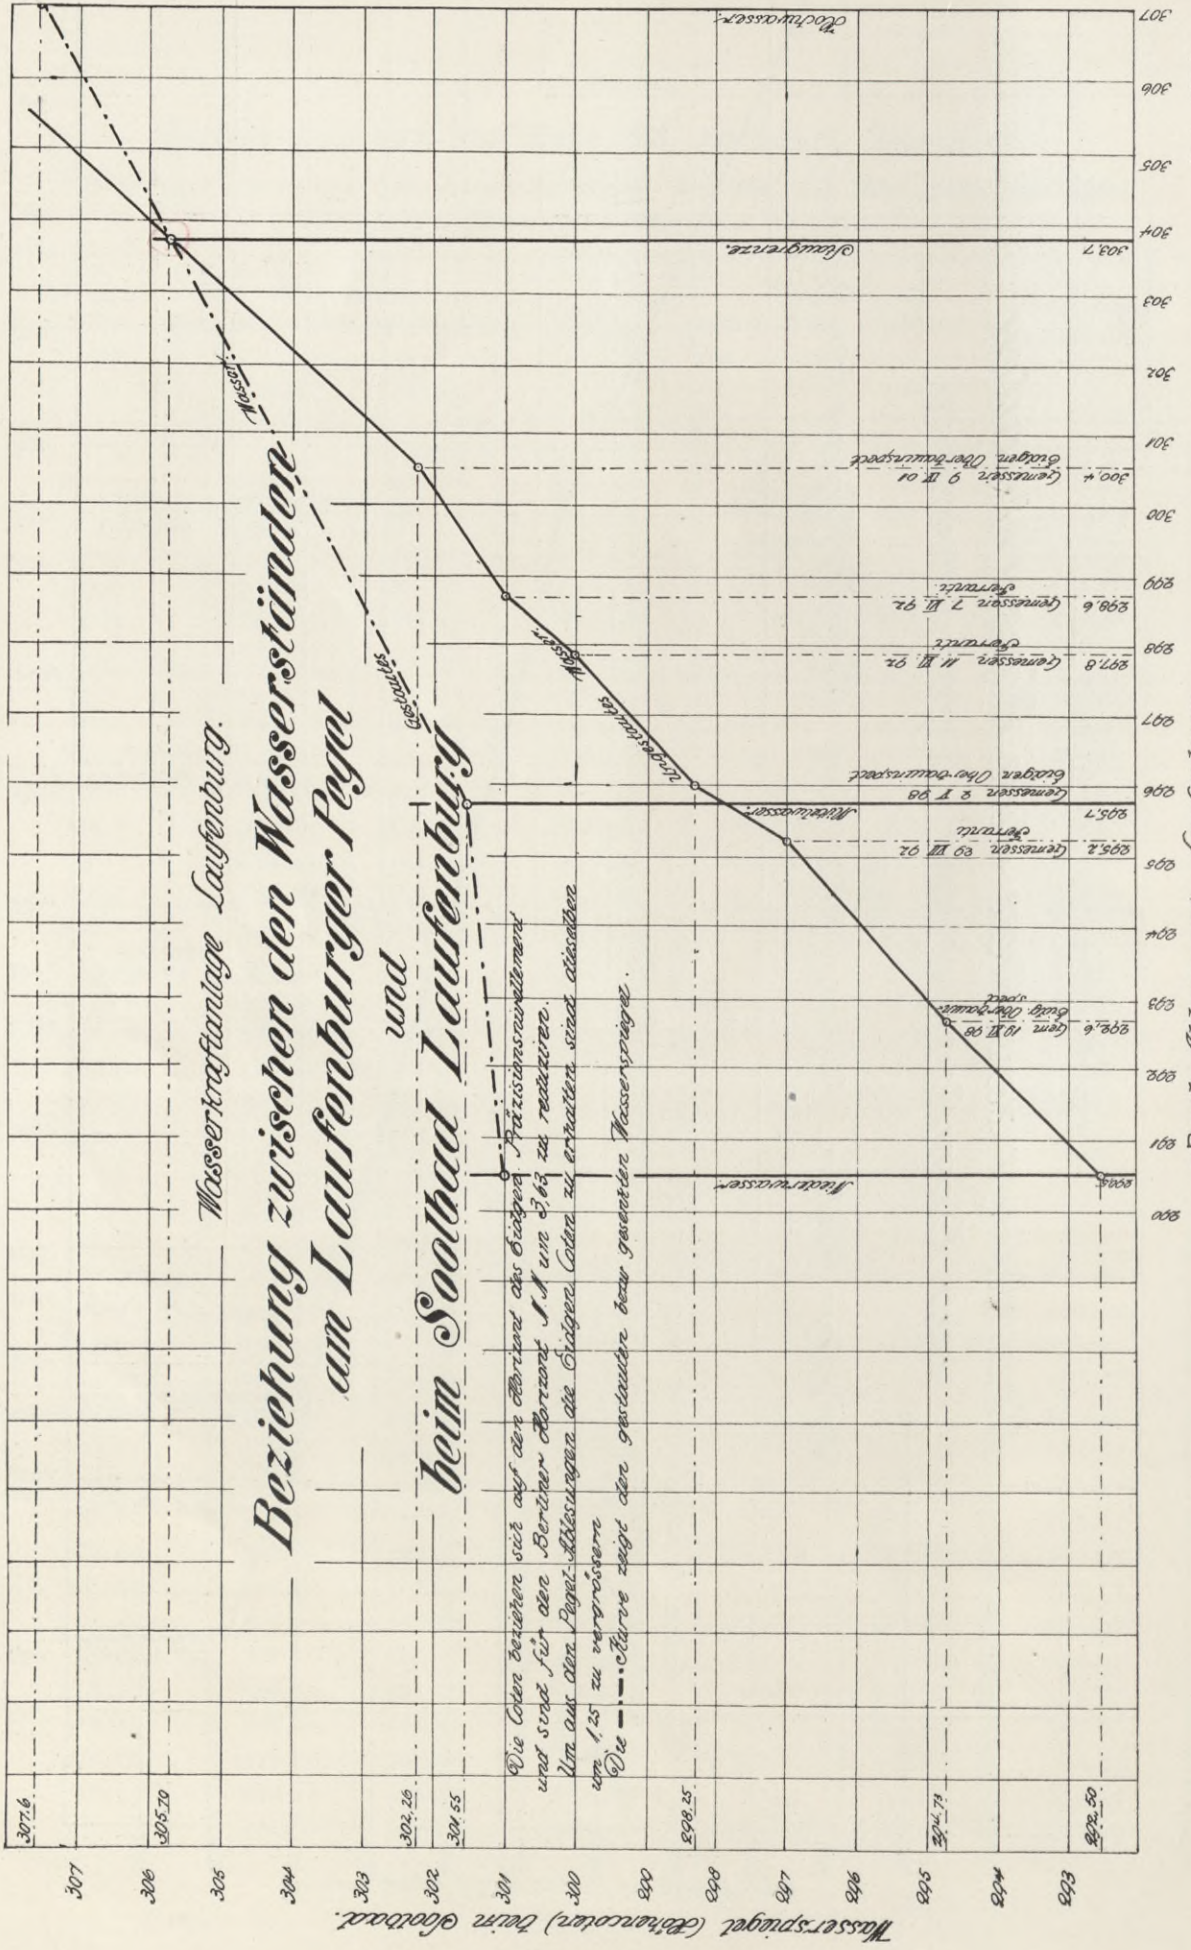 Wasserkraftanlage Laufenburg.
Beziehung zwischen den Wasserständen
am Laufenburger Pegel
und
beim Soolbad Laufenburg
Die Coten beziehen sich auf den Horizont des Eidgen. Präzisionsnivellement
und sind für den Berliner Horizont N.N. um 3,63 zu reduzieren.
Um aus den Pegel-Ablesungen die Eidgen. Coten zu erhalten sind dieselben
um 1,25 zu vergrössern
Die Kurve zeigt den gestauten bezw gesenkten Wasserspiegel.
Wasserspiegel (Höhencoten) beim Soolbad.
307.6
307
306
305.70
305
304
303
302.26
302
301.55
301
300
299
298.25
298
297
296
295
294.73
294
293
292.50
Gestautes Wasser.
Ungestautes Wasser
Hochwasser.
Staugrenze.
Mittelwasser.
Niederwasser
303.7
300.4 Gemessen 9 IV 01
Eidgen Oberbauinspect
298.6 Gemessen 7 VI. 92
Ferranti.
297.8 Gemessen 11 VI 92
Ferranti
Gemessen 2 V 98
Eidgen Oberbauinspect
295.7
295.2 Gemessen 29 VII 92
Ferranti
292,6 Gem 19 XI 98
Eidg Oberbauin
spect
290.5
307
306
305
304
303
302
301
300
299
298
297
296
295
294
293
292
291
290